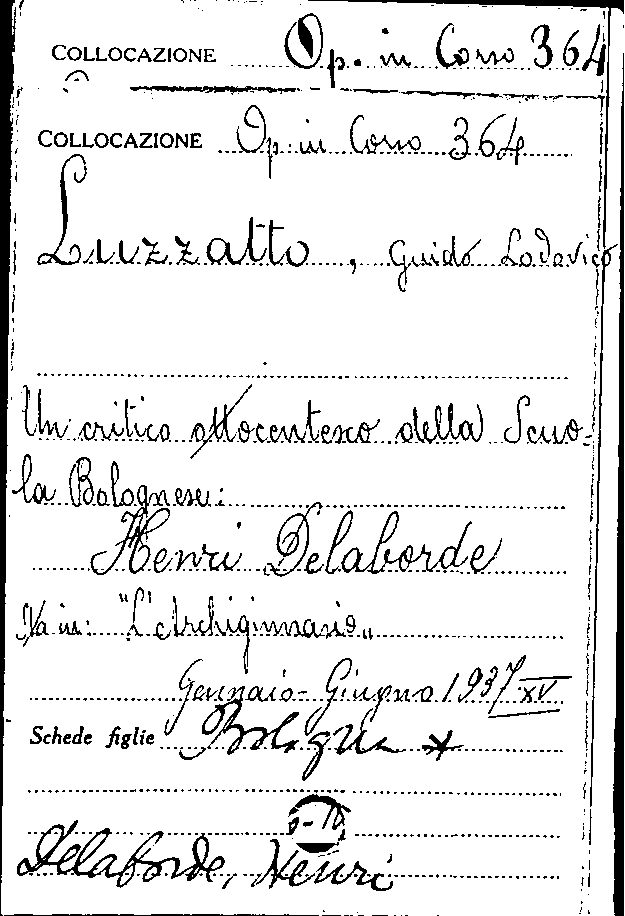 COLLOCAZIONE Op. in Corso 364
COLLOCAZIONE Op. in Corso 364
Luzzatto, Guido Lodovico
Un critico ottocentesco della Scuo-
la Bolognese:
Henri Delaborde
Va in: "L'Archiginnasio„
Gennaio-Giugno 1937 XV
Schede figlie Bologna *
Delaborde, Henri